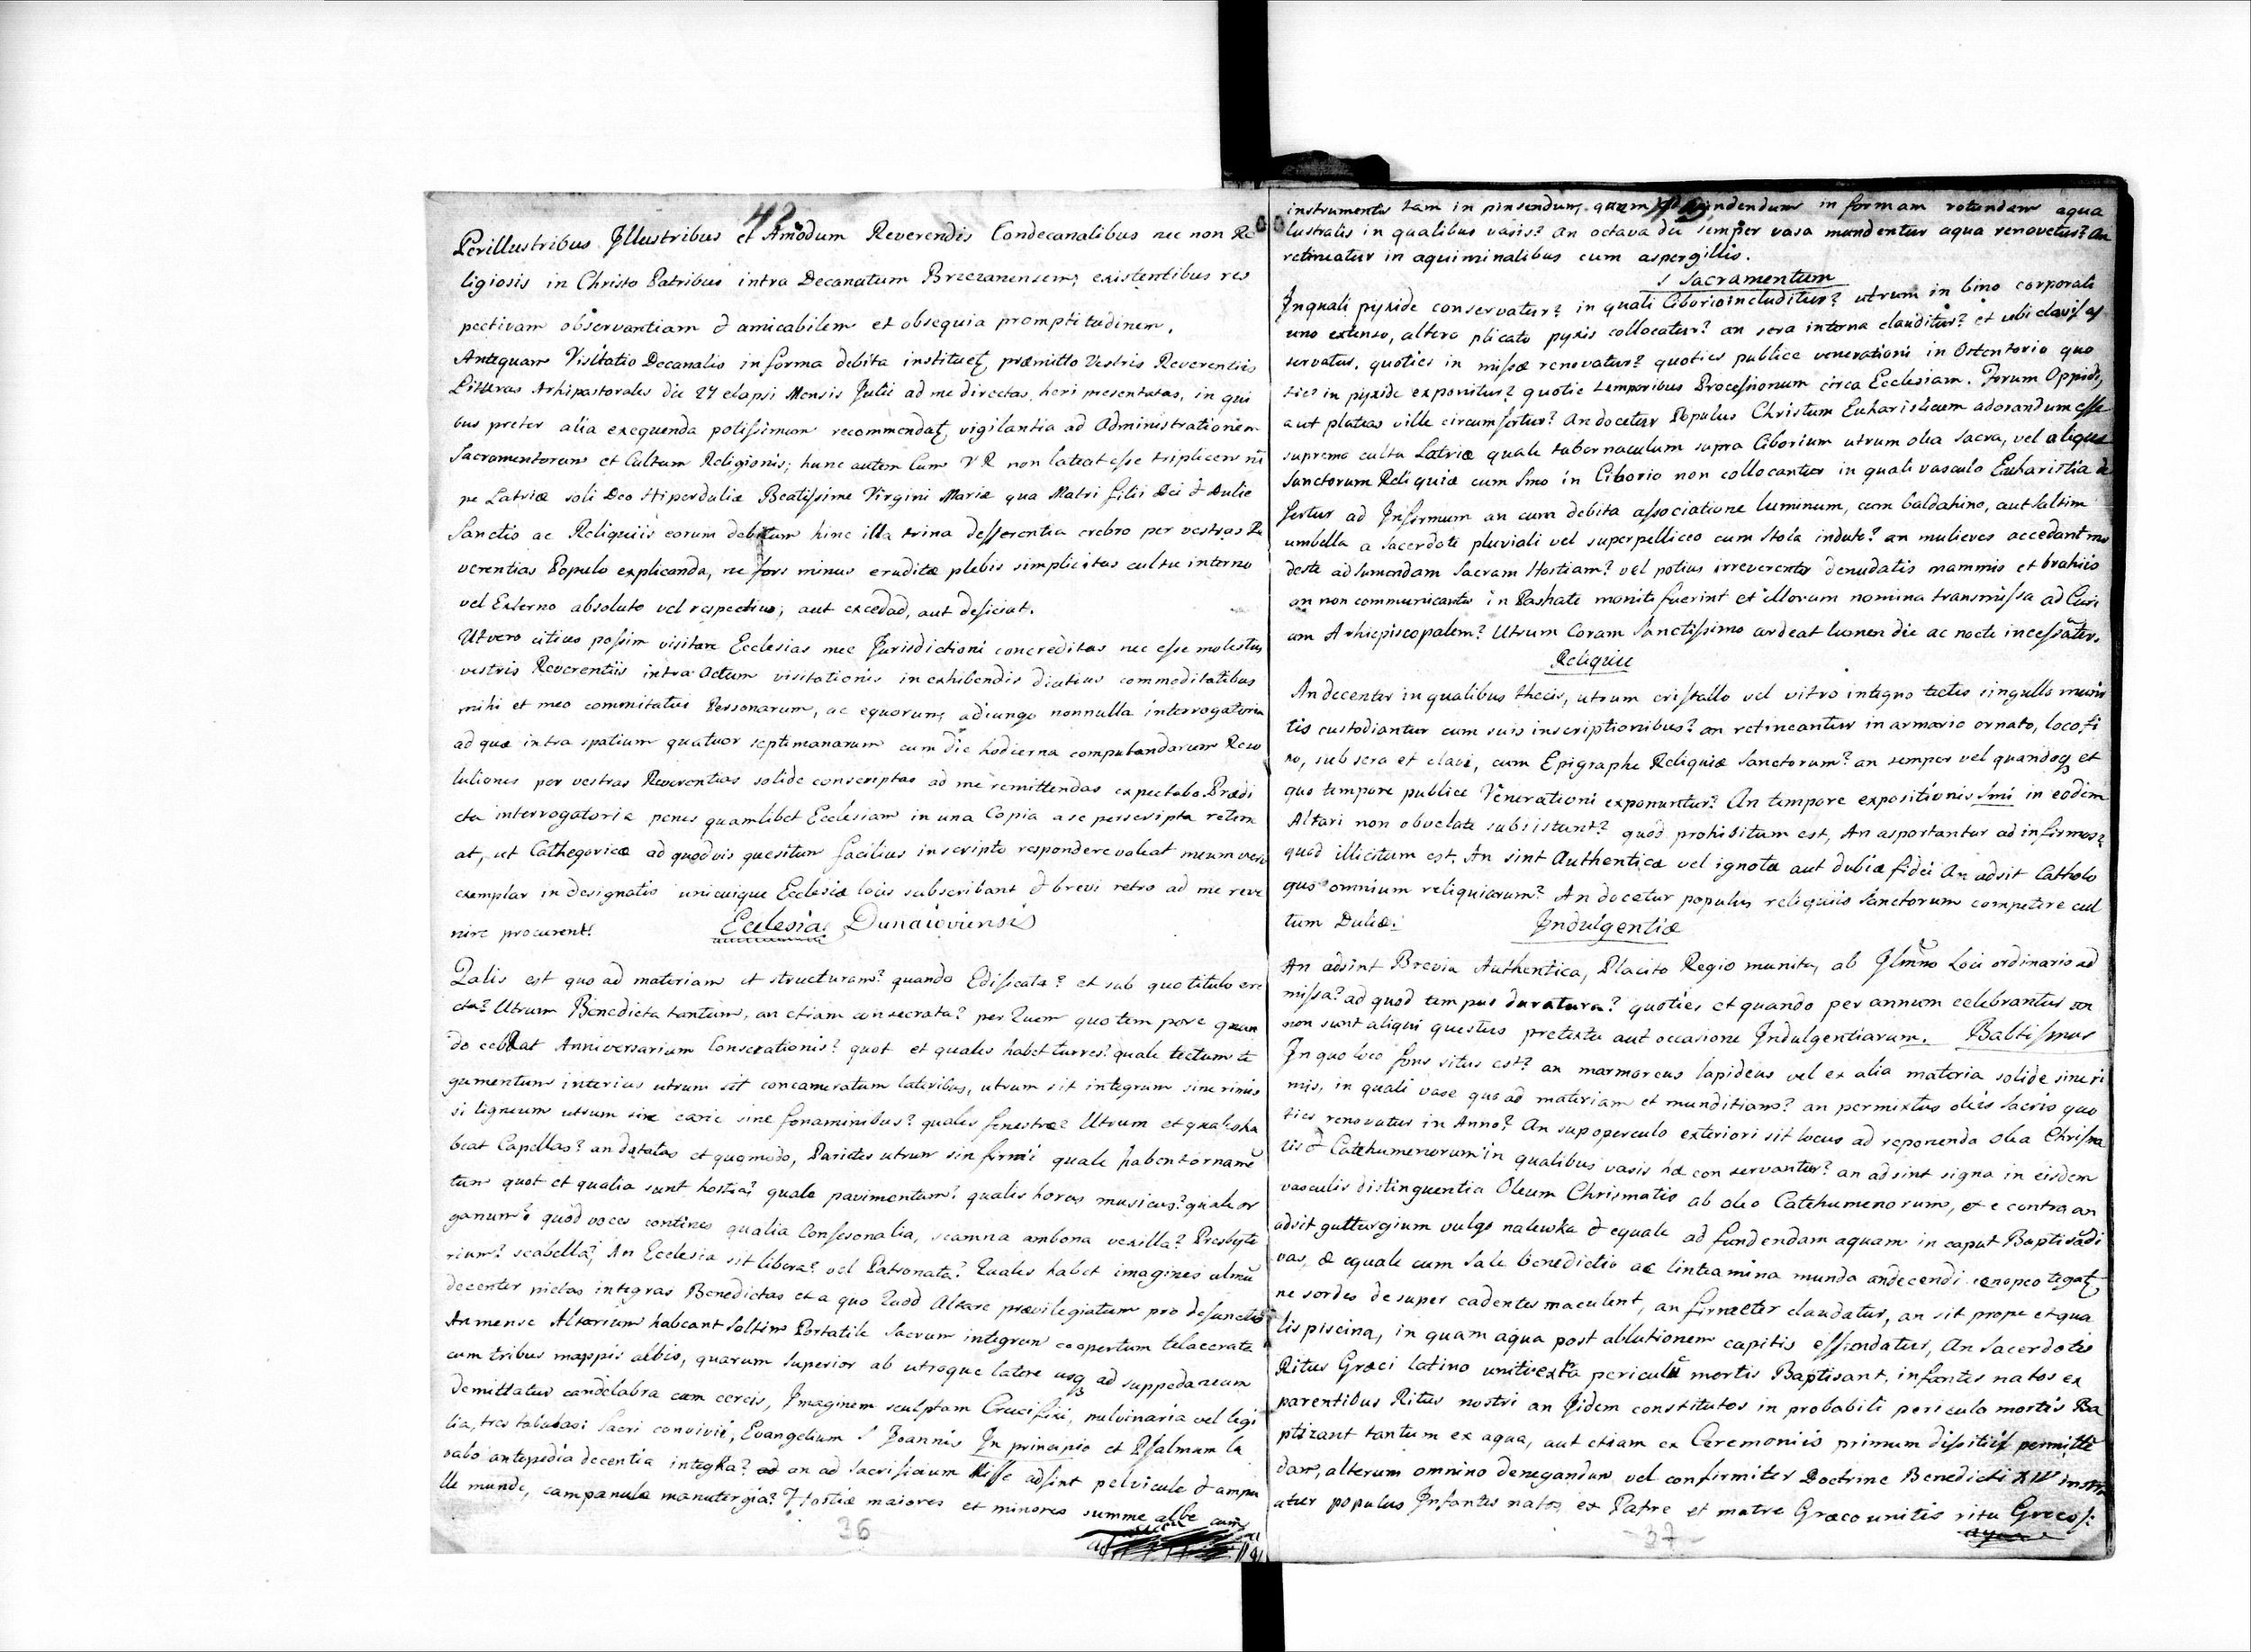 42
Perillustribus Illustribus et Amodum Reverendis Condecanalibus nec non Re
ligiosis in Christo Patribus intra Decanatum Brzezanensem, existentibus res
pectivam observantiam & amicabilem et obsequia promptitudinem.
Antequam Visitatio Decanalis in forma debita instituet, præmitto Vestris Reverentiis
Litteras Arhipastorales die 27 elapsi Mensis Julii ad me directas, heri presentatas, in qui
bus preter alia exequenda potissimum recommendat, vigilantia ad Administrationem
Sacramentorum et Cultum Religionis; hunc autem Cum VR non lateat esse triplicem nī
pe Latriæ soli Deo Hiperduliæ Beatissime Virgini Mariæ qua Matri filii Dei & Dulie
Sanctis ac Reliquiis eorum debitum hinc illa trina defferentia crebro per vestras Re
verentias Populo explicanda, ne fors minus eruditæ plebis simplicitas cultu interno
vel Externo absoluto vel respectivo, aut excedad, aut deficiat.
Ut vero citius possim visitare Ecclesias mee Jurisdictioni concreditas nec esse molestus
vestris Reverentiis intra Actum visitationis in exhibendis diutius commoditatibus
mihi et meo commitatui Personarum, ac equorum, adiungo nonnulla interrogatoria
ad quæ intra spatium quatuor septimanarum cum die hodierna computandarum Reso
lutiones per vestras Reverentias solide conscriptas ad me remittendas expectabo. Prædi
cta interrogatoria penes quamlibet Ecclesiam in una Copia a se perscripta retine
at, ut Cathegorice ad quodvis quesitum facilius in scripto respondere valeat meum vero
exemplar in designatis unicuique Ecclesiæ locis subscribant & brevi retro ad me reve
nire procurent. Ecclesia Dunaioviensis
Qalis est quo ad materiam et structuram? quando Edificata? et sub quo titulo ere
cta? Utrum Benedicta tantum, an etiam consecrata? per Quem quo tempore quan
do celebrat Anniversarium Consecrationis? quot et quales habet turres? quale tectum te
gumentum interius utrum sit concameratum lateribus, utrum sit integrum sine rimis
si ligneum utrum sine carie sine foraminibus? quales fenestræ Utrum et quales ha
beat Capellas? an dotatas et quomodo, Parietes utrum sin firmi quale habent ornamē
tum quot et qualia sunt hostia? quale pavimentum? qualis horus musicus? quale or
ganum? quod voces contines qualia Confesonalia, scamna ambona vexilla? Presbyte
rium? scabella? An Ecclesia sit libera? vel Patronata? Quales habet imagines
decenter pictas integras Benedictas et a quo Quod Altare previlegiatum pro defunctis
An mense Altarium habeant saltim Portatile Sacrum integrum coopertum tela cerata
cum tribus mappis albis, quarum superior ab utroque latere usq ad suppedaneum
demittatur candelabra cum cereis, Imaginem sculptam Crucifixi, pulvinaria vel legi
lia, tres tabulas: Sacri convivii, Evangelium S Joannis In principio et Psalmum la
vabo antepedia decentia integra? an ad sacrificium Misse adsint pelvicule & ampu
lle munde, campanula manutergia? Hostiæ maiores et minores summe albe cum
36
instrumentis tam in pinsendum, quam in formam rotundam aqua
lustralis in qualibus vasis? an octava die semper vasa mundentur aqua renovetur? an
retineatur in aquiminalibus cum aspergillis.
S Sacramentum
In quali pyxide conservatur? in quali Ciborio includitur? utrum in bino corporali
uno extenso, altero plicato pyxis collocatur? an sera interna clauditur? et ubi clavis as
servatur. quoties in missa renovatur? quoties publice venerationi in Ostentorio quo
ties in pyxide exponitur? quotie temporibus Processionum circa Ecclesiam. Forum Oppidi,
aut plateas ville circumfertur? An docetur Populus Christum Eukaristicum adorandum esse
supremo cultu Latriæ quale tabernaculum supra Ciborium utrum olea sacra, vel aliquæ
Sanctorum Reliquiæ cum Smo in Ciborio non collocantur in quali vasculo Eukaristia de
fertur ad Infirmum an cum debita associatione luminum, cum baldahino, aut saltim
umbella a sacerdote pluviali vel superpelliceo cum Stola induto? an mulieres accedant mo
deste ad sumendam Sacram Hostiam? vel potius irreverenter denudatis mammis et brahiis
an non communicantes in Pashate moniti fuerint et illorum nomina transmissa ad Curi
am Arhiepiscopalem? Utrum Coram Sanctissimo ardeat lumen die ac nocte incessāter.
Reliquiæ
An decenter in qualibus thecis, utrum cristallo vel vitro integro tectis singullo muni
tis custodiantur cum suis inscriptionibus? an retineantur in armario ornato, loco fi
xo, sub sera et clavi, cum Epigraphe Reliquiæ Sanctorum? an semper vel quandoq et
quo tempore publice Venerationi exponuntur? An tempore expositionis Smi in eodem
Altari non obvelate subsistunt? quod prohibitum est, An asportantur ad infirmos?
quod illicitum est, An sint Authenticæ vel ignotæ aut dubiæ fidei An adsit Catholo
gus omnium reliquiarum? An docetur populus reliquiis Sanctorum competere cul
tum Duliæ. Indulgentiæ
An adsint Brevia Authentica, Placito Regio munita, ab Illmo Loci ordinario ad
missa? ad quod tempus duratura? quoties et quando per annum celebrantur an
non sunt aliqui questus pretextu aut occasione Indulgentiarum. Babtismus
In quo loco fons situs est? an marmoreus lapideus vel ex alia materia solide sine ri
mis, in quali vase quo ad materiam et munditiam? an permixtus oleis Sacris quo
ties renovatur in Anno? An sup operculo exteriori sit locus ad reponenda olea Chrisma
tis & Catehumenorum in qualibus vasis hæ conservantur? an adsint signa in eisdem
vasculis distinguentia Oleum Chrismatis ab oleo Catehumenorum, et e contra an
adsit gutturgium vulgo nalewka & equale ad fundendam aquam in caput Baptisādi
vas, & equale cum Sale benedicto ac linteamina munda an decendi conopeo tegat,
ne sordes desuper cadentes maculent, an firmeter claudatur, an sit prope et qua
lis piscina, in quam aqua post ablutionem capitis effundatur, An Sacerdotes
Ritus Græci latino uniti extra periculū mortis Baptisant, infantes natos ex
parentibus Ritus nostri an Jidem constitutos in probabili periculo mortis Ba
ptizant tantum ex aqua, aut etiam ex Ceremoniis primum permitte
dam, alterum omnino denegandum vel confirmiter Doctrine Benedicti XIV instru
atur populus Infantes natos ex Patre et matre Græco unitis ritu Greco
37